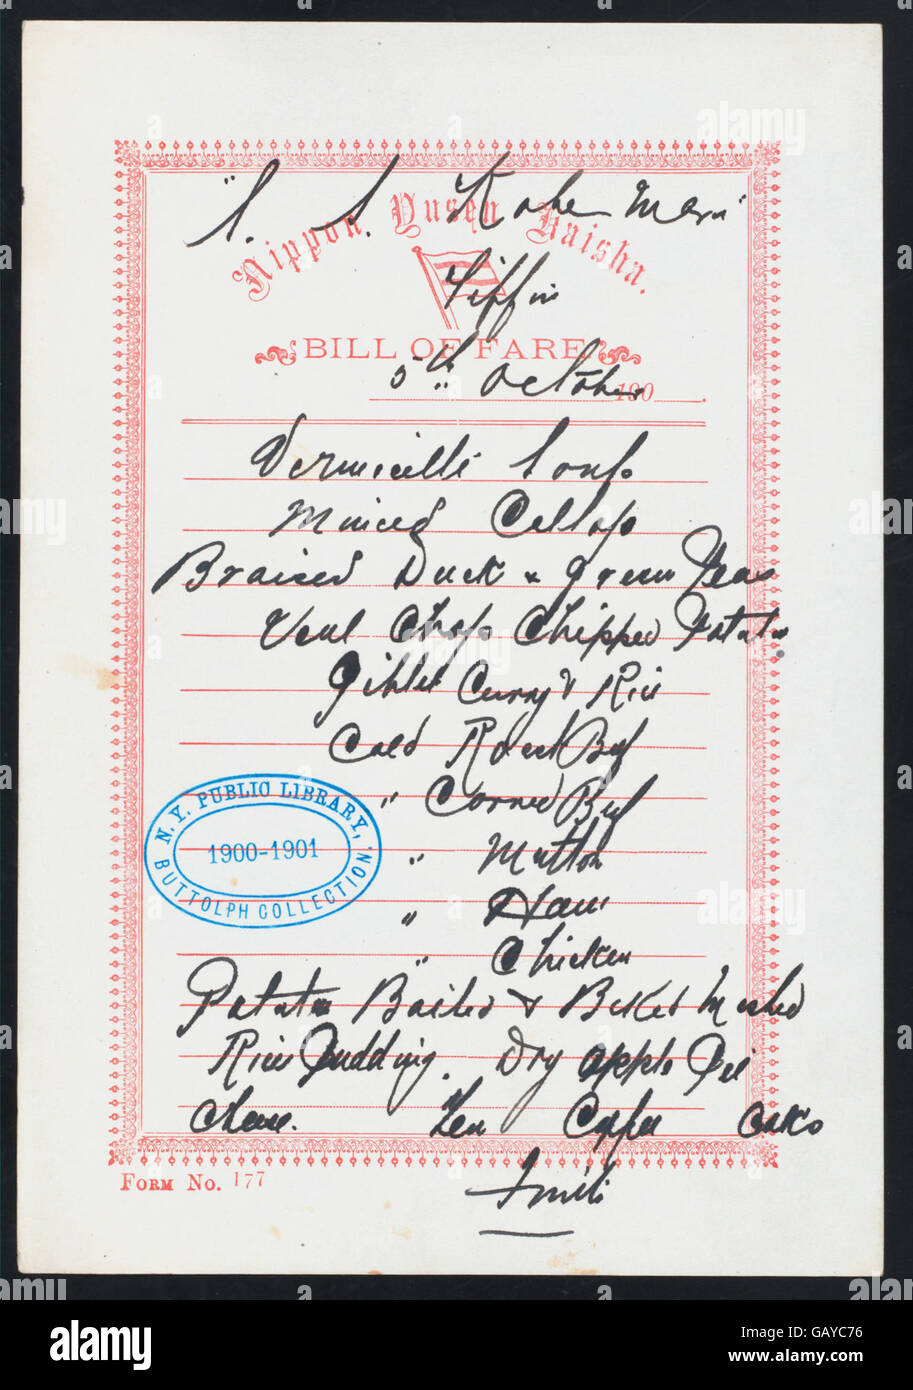 "S. S. Kobe Maru"
Nippon Yusen Kaisha.
Tiffin
BILL OF FARE
5th October 190
Vermicelli Soup
Minced Collop
Braised Duck & Green Peas
Veal Chop Chipped Potatoes
Giblet Curry & Rice
Cold Roast Beef
" Corned Beef
" Mutton
" Ham
" Chicken
Potatoes Boiled & Baked Mashed
Rice Pudding. Dry Apple Pie
Cheese. Tea Coffee Cakes
Fruits
N. Y. PUBLIC LIBRARY,
1900-1901
BUTTOLPH COLLECTION.
FORM NO. 177
alamy
Image ID: GAYC76
www.alamy.com